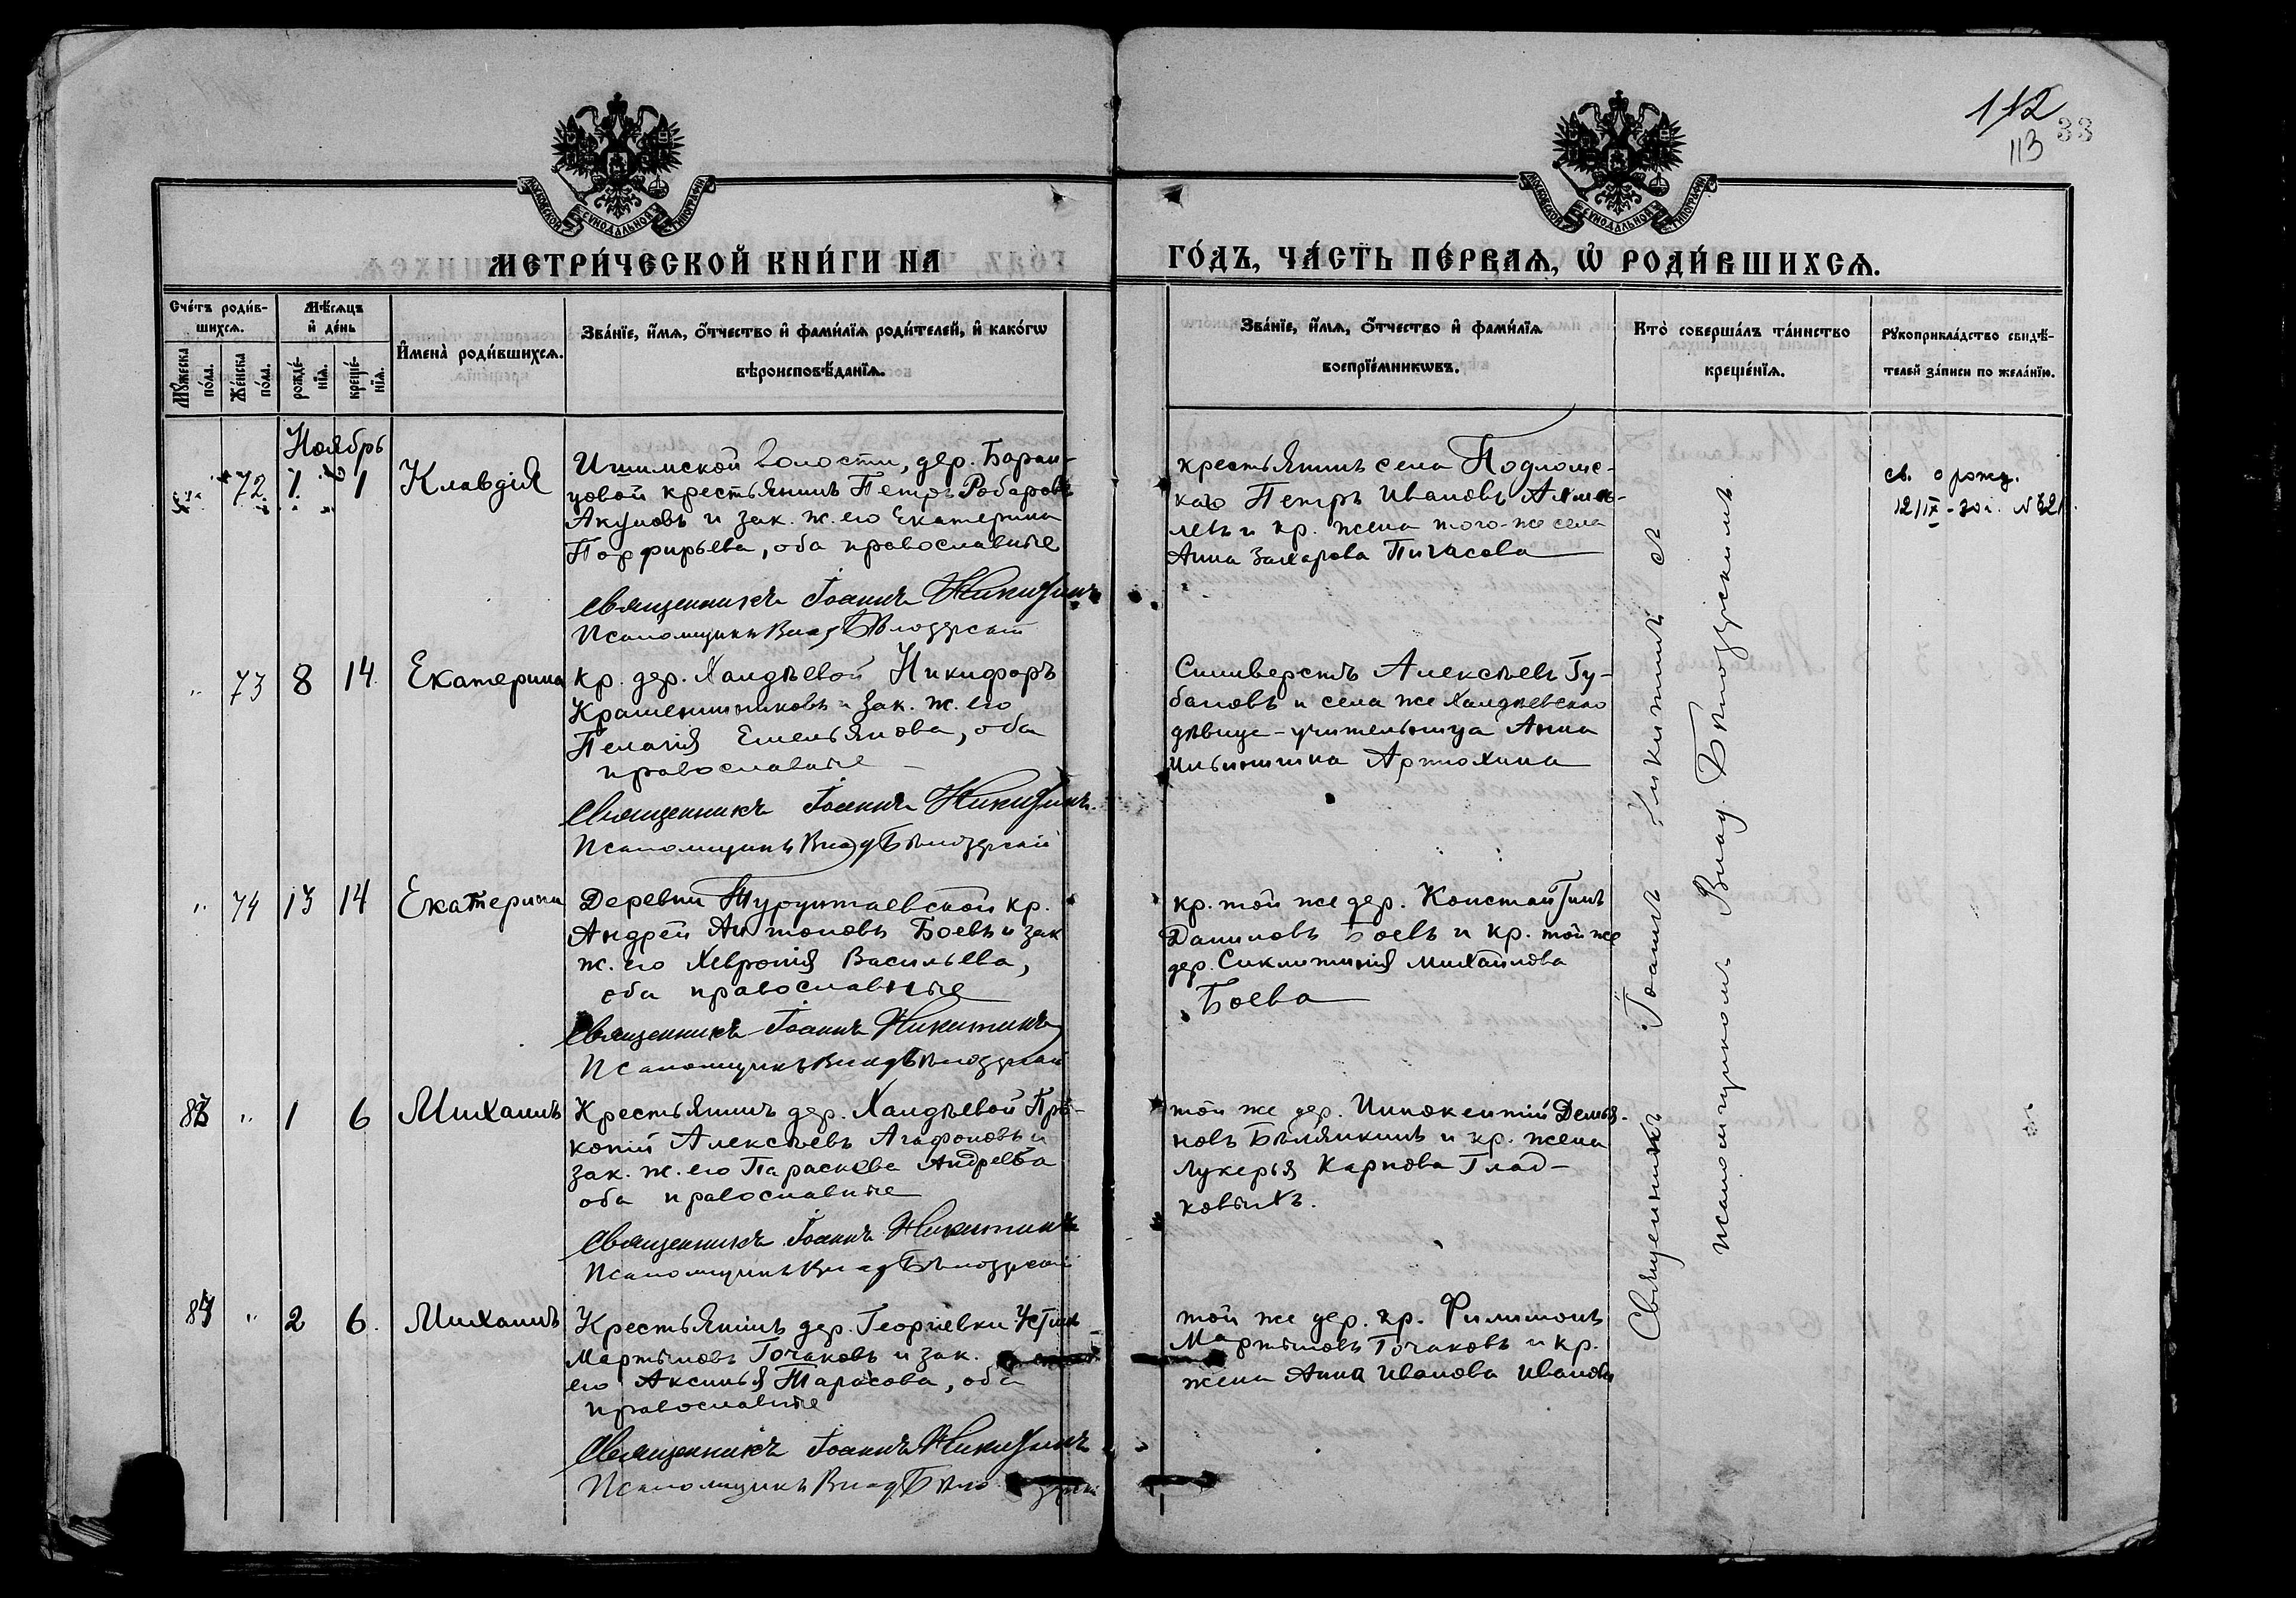 112
113
33
МОСКОВСКОЙ СѴНОДАЛЬНОЙ ТИПОГРАФІИ
МОСКОВСКОЙ СѴНОДАЛЬНОЙ ТИПОГРАФІИ
МЕТРИ́ЧЕСКОЙ КНИ́ГИ НА
ГО́ДЪ, ЧА́СТЬ ПЕ́РВАѦ, Ѡ҆ РОДИ́ВШИХСѦ.
Сче́тъ роди́в-
шихсѧ.
Мꙋ́жеска по́ла.
Же́нска по́ла.
Мѣ́сѧцъ
и҆ де́нь
рожде́-
нїѧ.
креще́-
нїѧ.
И҆мена̀ роди́вшихсѧ.
Зва́нїе, и҆́мѧ, ѻ҆́тчество и҆ фами́лїѧ роди́телей, и҆ како́гѡ
вѣроисповѣ́данїѧ.
Зва́нїе, и҆́мѧ, ѻ҆́тчество и҆ фами́лїѧ
воспрїе́мникѡвъ.
Кто̀ соверша́лъ та́инство
креще́нїѧ.
Рꙋкоприкла́дство свидѣ́-
телей за́писи по жела́нїю.
Ноябрь
72 1 1 Клавдія
Ишимской волости, дер. Баран-
цовой крестьянинъ Петръ
Акуловъ и зак. ж. его Екатерина
Порфирьева, оба православные
Священникъ Іоаннъ Никитинъ
Псаломщикъ Влад Бѣлозерскій
крестьянинъ села Подломс-
каго Петръ Ивановъ
левъ и кр. жена того-же села
Анна Захарова Пигасова
св. о рожд.
12/IX - 30 г. N 321
" 73 8 14 Екатерина
кр. дер. Халдѣевой Никифоръ
Крашенинниковъ и зак. ж. его
Пелагія Емельянова, оба
православные
Священникъ Іоаннъ Никитинъ
Псаломщикъ Влад Бѣлозерскій
Силиверстъ Алексѣевъ Гу-
бановъ и села же Халдѣевскаго
дѣвица - учительница Анна
Ильинишна Артюхина
" 74 13 14 Екатерина
Деревни Турунтаевской кр.
Андрей Антоновъ Боевъ и зак
ж. его Хевронія Васильева,
оба православные
Священникъ Іоаннъ Никитинъ
Псаломщикъ Влад Бѣлозерскій
кр. той же дер. Константинъ
Даниловъ Боевъ и кр. той же
дер. Сиклитинія Михайлова
Боева
" 1 6 Михаилъ
Крестьянинъ дер. Халдѣевой Про-
копій Алексѣевъ Агафоновъ и
зак. ж. его Параскева Андреева
оба православные
Священникъ Іоаннъ Никитинъ
Псаломщикъ Влад Бѣлозерскій
той же дер. Иннокентій Демья-
новъ Бѣлянкинъ и кр. жена
Лукерья Карпова Глад-
ковыхъ.
" 2 6. Михаилъ
Крестьянинъ дер. Георгіевки Устинъ
Мартыновъ Гочаковъ и зак.
его Аксинья Тарасова, оба
православные
Священникъ Іоаннъ Никитинъ
Псаломщикъ Влад Бѣлозерскій
той же дер. кр. Филимонъ
Мартыновъ Гочаковъ и кр.
жена Анна Иванова Иванова
Священникъ Іоаннъ Никитинъ съ
псаломщикомъ Влад. Бѣлозерскимъ.